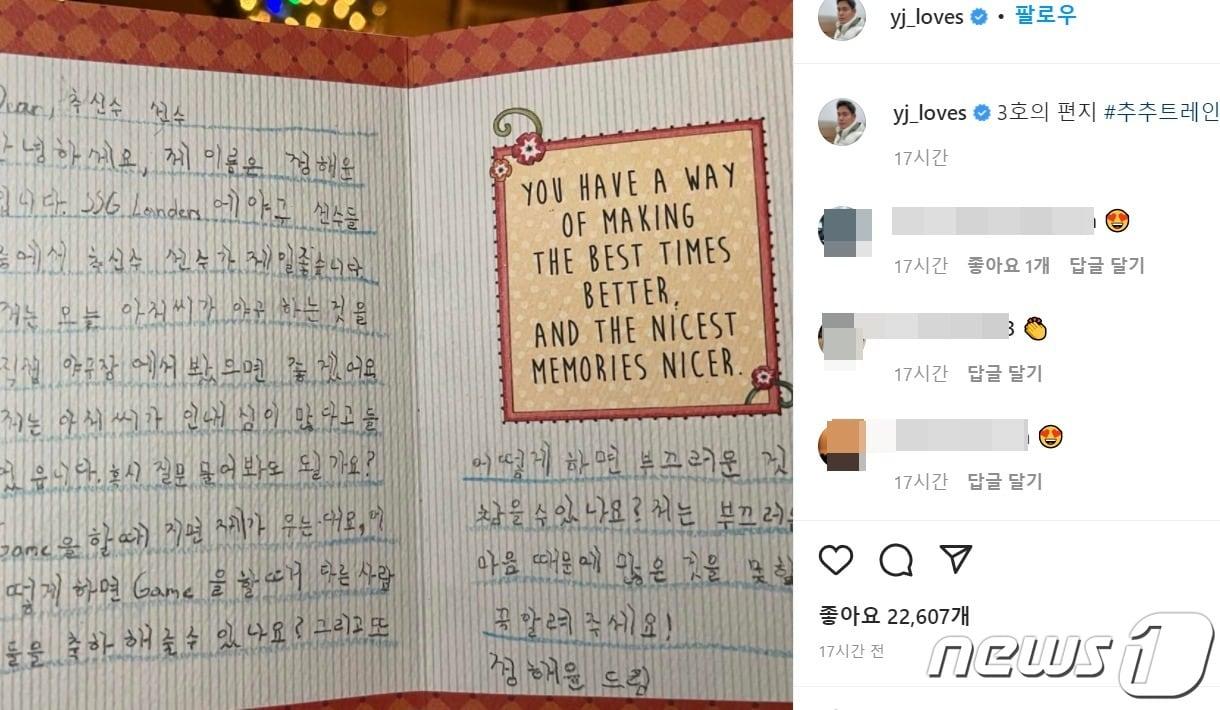 Dear, 추신수 선수
안녕하세요, 제 이름은 정해윤
입니다. SSG Landers 에 야구 선수들
중에서 추신수 선수가 제일 좋습니다
저는 오늘 아저씨가 야구 하는 것을
직접 야구장 에서 봤으면 좋겠어요
저는 아저씨가 인내심이 많다고 들
었읍니다. 혹시 질문 물어봐도 될가요?
Game을 할때 지면 제가 우는대요, 어
떻게 하면 Game 을 할때 다른 사람
들을 축하 해줄수 있나요? 그리고 또
YOU HAVE A WAY
OF MAKING
THE BEST TIMES
BETTER,
AND THE NICEST
MEMORIES NICER.
어떻게 하면 부끄러운 것
참을수 있나요? 저는 부끄러운
마음 때문에 많은 것을 못 합
꼭 알려 주세요!
정해윤 드림
yj_loves • 팔로우
yj_loves 3호의 편지 #추추트레인
17시간
17시간 좋아요 1개 답글 달기
17시간 답글 달기
17시간 답글 달기
좋아요 22,607개
17시간 전
news1